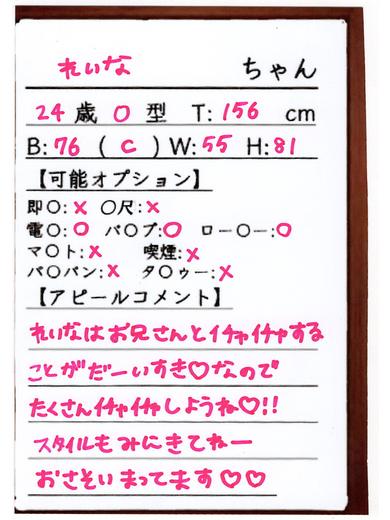 れいな ちゃん
24歳 O型 T:156 cm
B:76 (C) W:55 H:81
【可能オプション】
即〇:× 〇尺:×
電〇:〇 バ〇ブ:〇 ロー〇ー:〇
マ〇ト:× 喫煙:×
パ〇パン:× タ〇ゥー:×
【アピールコメント】
れいなはお兄さんとイチャイチャする
ことがだーいすき♡なので
たくさんイチャイチャしようね♡!!
スタイルもみにきてねー
おさそいまってます♡♡